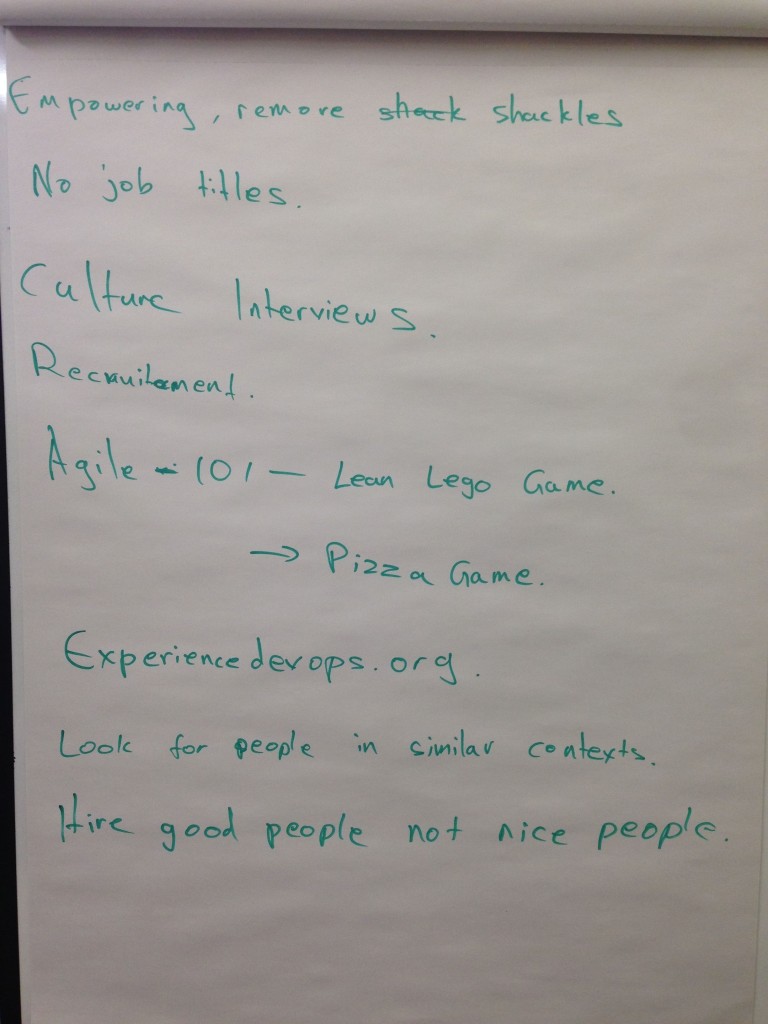 Empowering, remore shack shackles
No job titles.
Culture Interviews.
Recruitement.
Agile - 101 — Lean Lego Game.
→ Pizza Game.
Experiencedevops.org.
Look for people in similar contexts.
Hire good people not nice people.